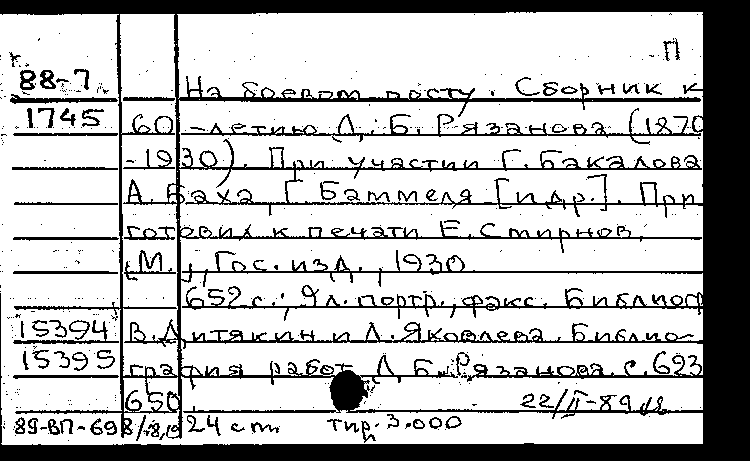 П
88-7 На боевом посту. Сборник к
1745 60-летию Д. Б. Рязанова (1870
-1930). При участии Г. Бакалова
А. Баха, Г. Баммеля [и др.]. При
готовил к печати Е. Смирнов.
[М.], Гос. изд., 1930
652 с.; 9 л. портр., факс. Библиог
15394 В. Дитякин и Л. Яковлева. Библио-
15395 графия работ Д. Б. Рязанова. с. 623
650.
22/II-89
89-ВП-698/ 24 см тир. 3.000